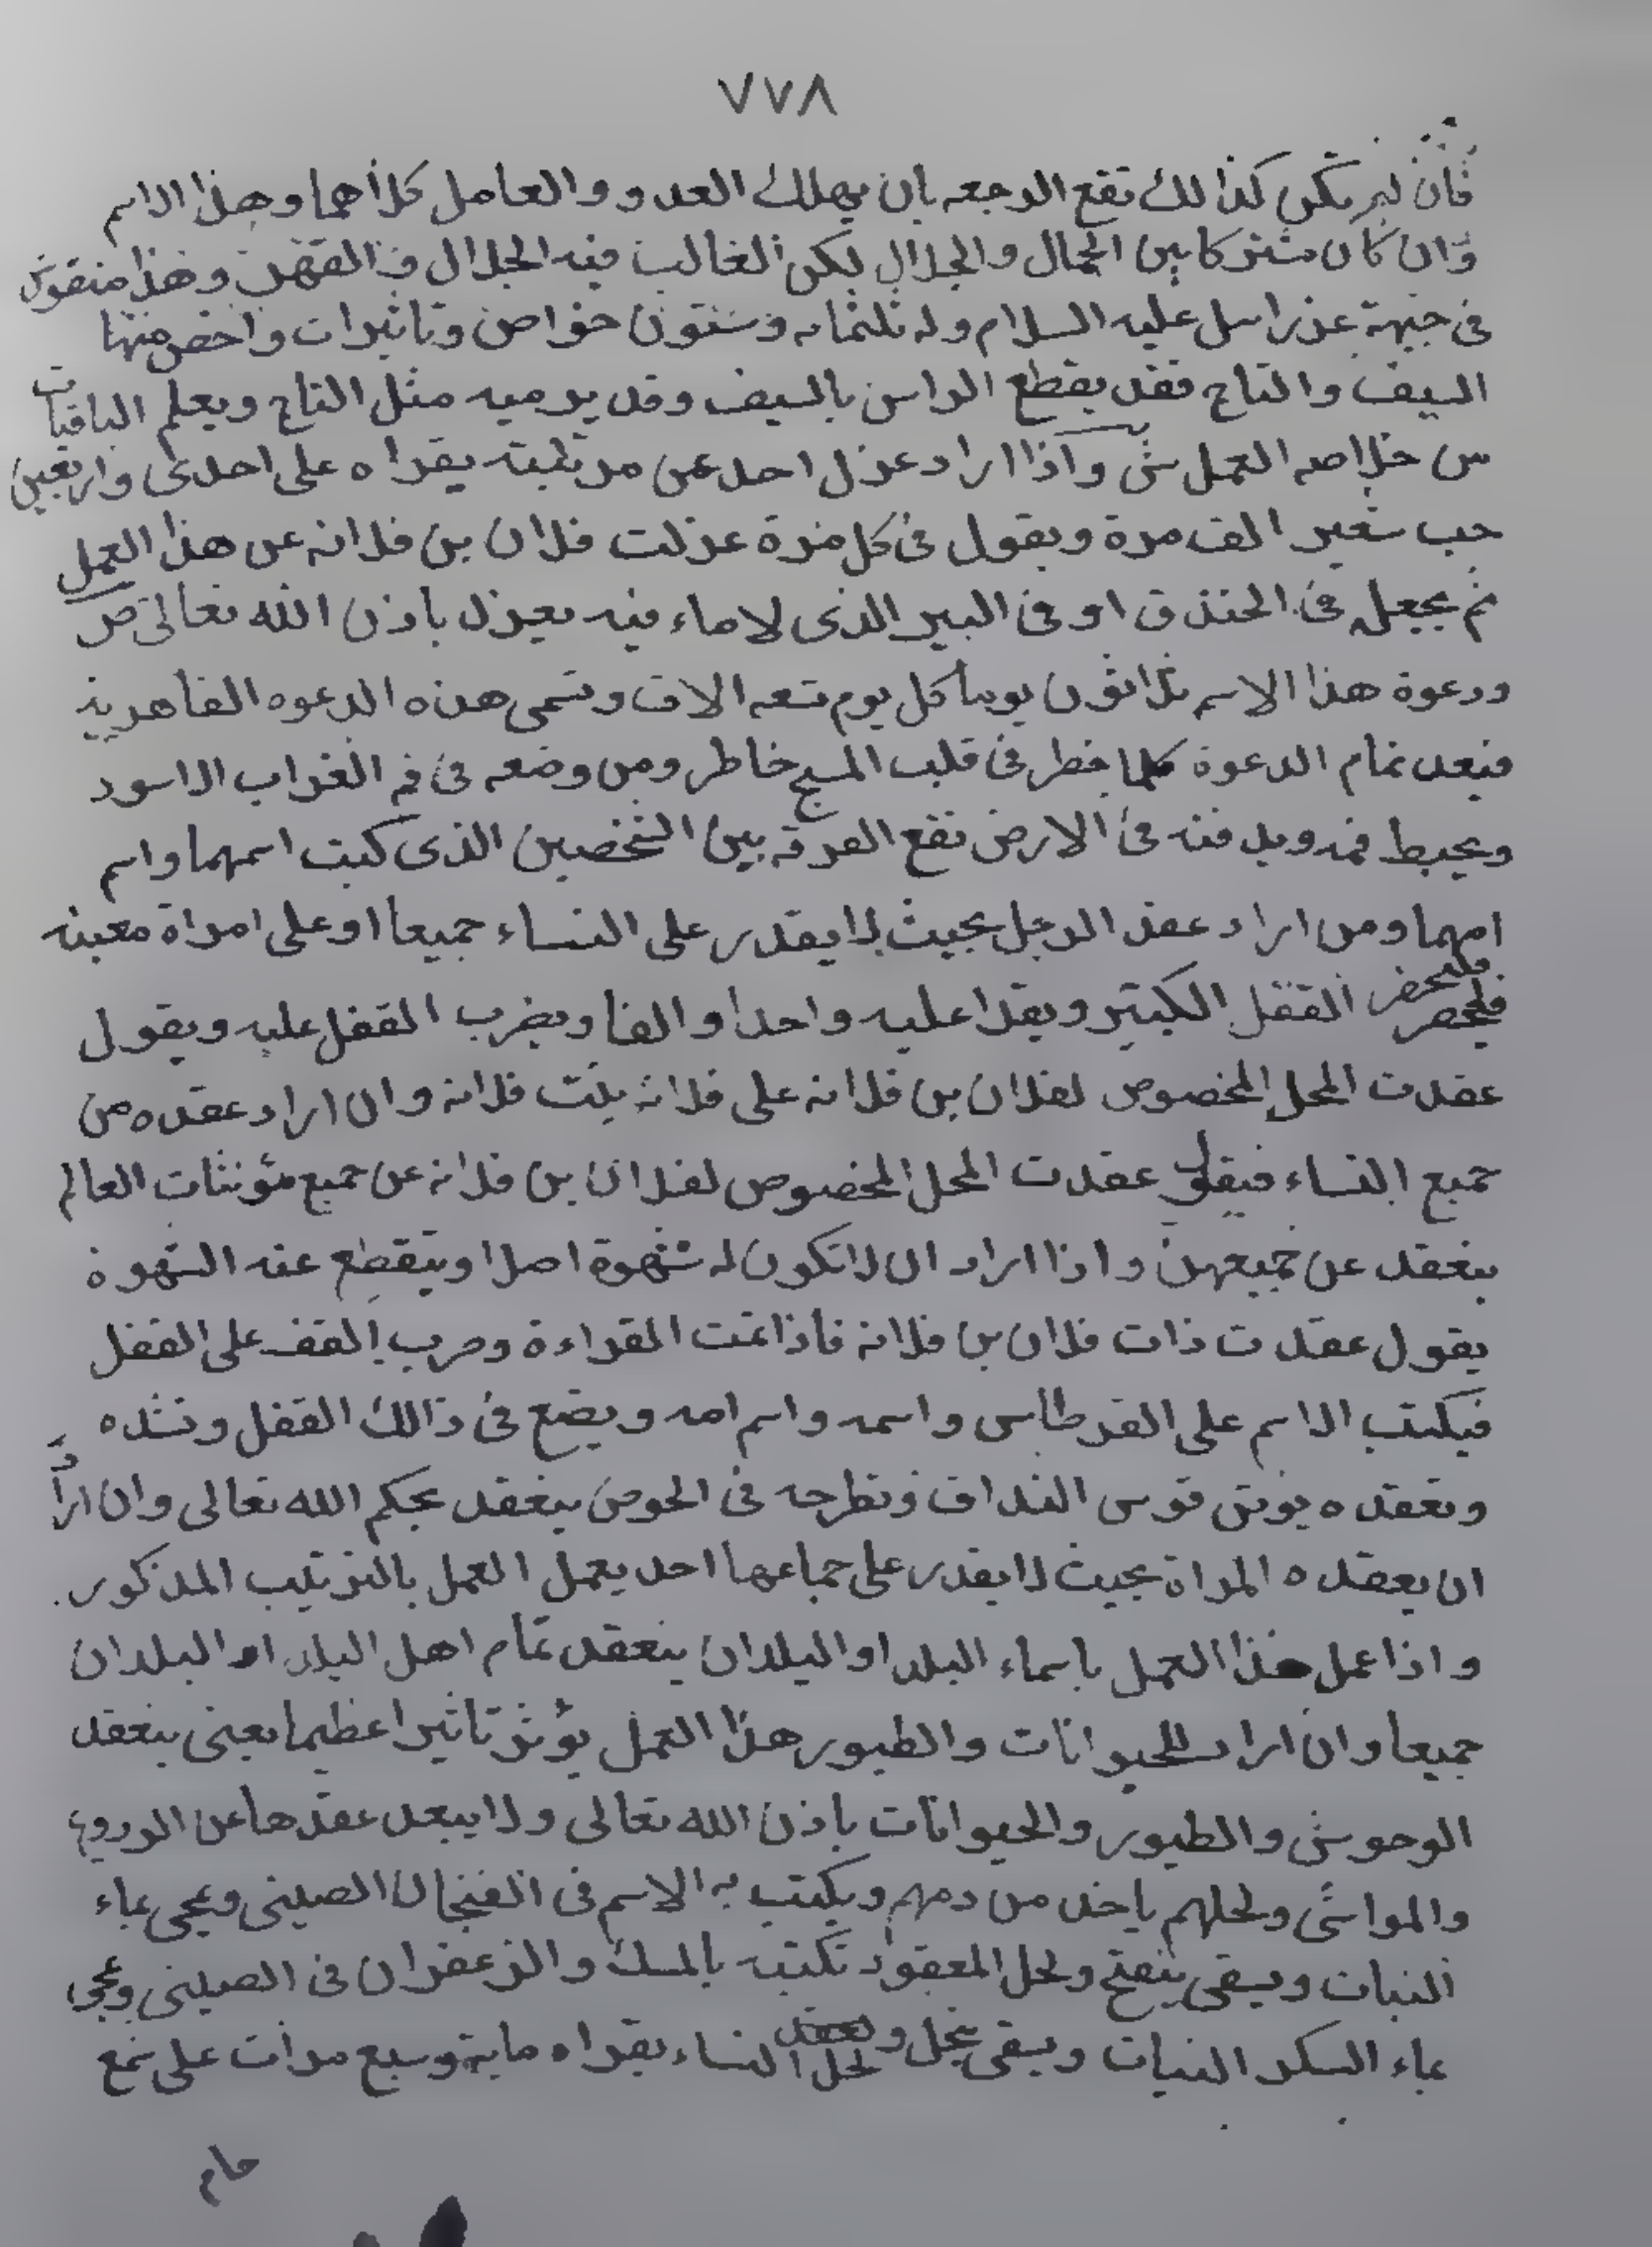 ٧٧٨
فان لم يكن كذالك تقع الرجعه بان يهلك العدو والعامل كلاهما وهذا الاسم
وان كان مشتركا بين الجمال والجلال لكن الغالب فيه الجلال والقهر وهذا منقوش
فى جبهة عزراسل عليه السلام وله ثلثمايه وستون خواص وتاثيرات واخص منها
السيف والتاج فقد يقطع الراس بالسيف وقد يرميه مثل التاج ويعلم الباقيات
من خلاصه العمل واذا اراد عزل احد عن مرتبته يقراه على احدى واربعين
حب شعير الف مرة ويقول فى كل مرة عزلت فلان بن فلانه عن هذا العمل
ثم يجعل فى الخندق او فى البير الذى لا ماء فيه يعزل باذن الله تعالى
ودعوة هذا الاسم ثلاثون يوما كل يوم تسعه الاف وتسمى هذه الدعوه القاهريه
فبعد تمام الدعوة كلما خطر فى قلب المسبح خاطر ومن وضعه فى فم الغراب الاسود
ويخيط فمه ويدفنه فى الارض تقع الفرقه بين الشخصين الذى كتبت اسمهما واسم
امهما ومن اراد عقد الرجل بحيث لا يقدر على النساء جميعا او على امراة معينه
فليحضر القفل الكبير ويقرا عليه واحدا والفا ويضرب القفل عليه ويقول
عقدت المحل المخصوص لفلان بن فلانه على فلانه بنت فلانه وان اراد عقده من
جميع النساء فيقول عقدت المحل المخصوص لفلان بن فلانه عن جميع مؤنثات العالم
ينعقد عن جميعهن واذا اراد ان لا تكون له شهوة اصلا وينقطع عنه الشهوة
يقول عقدت ذات فلان بن فلانه فاذا تمت القراءة وضرب القف على القفل
فيكتب الاسم على القرطاس واسمه واسم امه ويضع فى ذالك القفل وتشده
وتعقده بوتر قوس النداف وتطرحه فى الحوض ينعقد بحكم الله تعالى وان اراد
ان يعقده المراة بحيث لا يقدر على جماعها احد يعمل العمل بالترتيب المذكور.
واذا عمل هذا العمل باسماء البلد او البلدان ينعقد تمام اهل البلد او البلدان
جميعا وان اراد للحيوانات والطيور هذا العمل يؤثر تاثيرا عظيما يعنى ينعقد
الوحوش والطيور والحيوانات باذن الله تعالى ولا يبعد عقدها عن الزروع
والمواشى ولحلهم ياخذ من دمهم ويكتب به الاسم فى الفنجان الصينى ويمحى بماء
النبات ويسقى ينفتح ولحل المعقود تكتبه بالمسك والزعفران فى الصينى ويمحى
بماء السكر النبات ويسقى ينحل ولحل النساء يقراه مايه وسبع مرات على شمع
خام